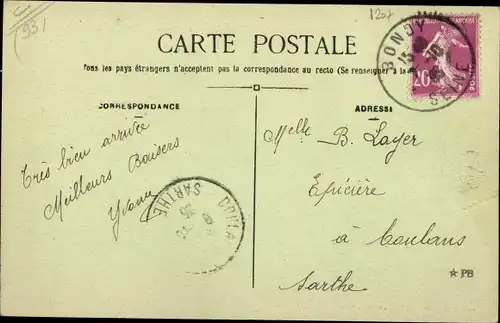 (93)
1207
CARTE POSTALE
Tous les pays étrangers n'acceptent pas la correspondance au recto (Se renseigner à la
CORRESPONDANCE
ADRESSE
Très bien arrivée
Meilleurs Baisers
Yvonne
Melle B. Layer
Epicière
à Coulans
Sarthe
BONDY
SEINE
20
POSTES
COULA
SARTHE
★ PB